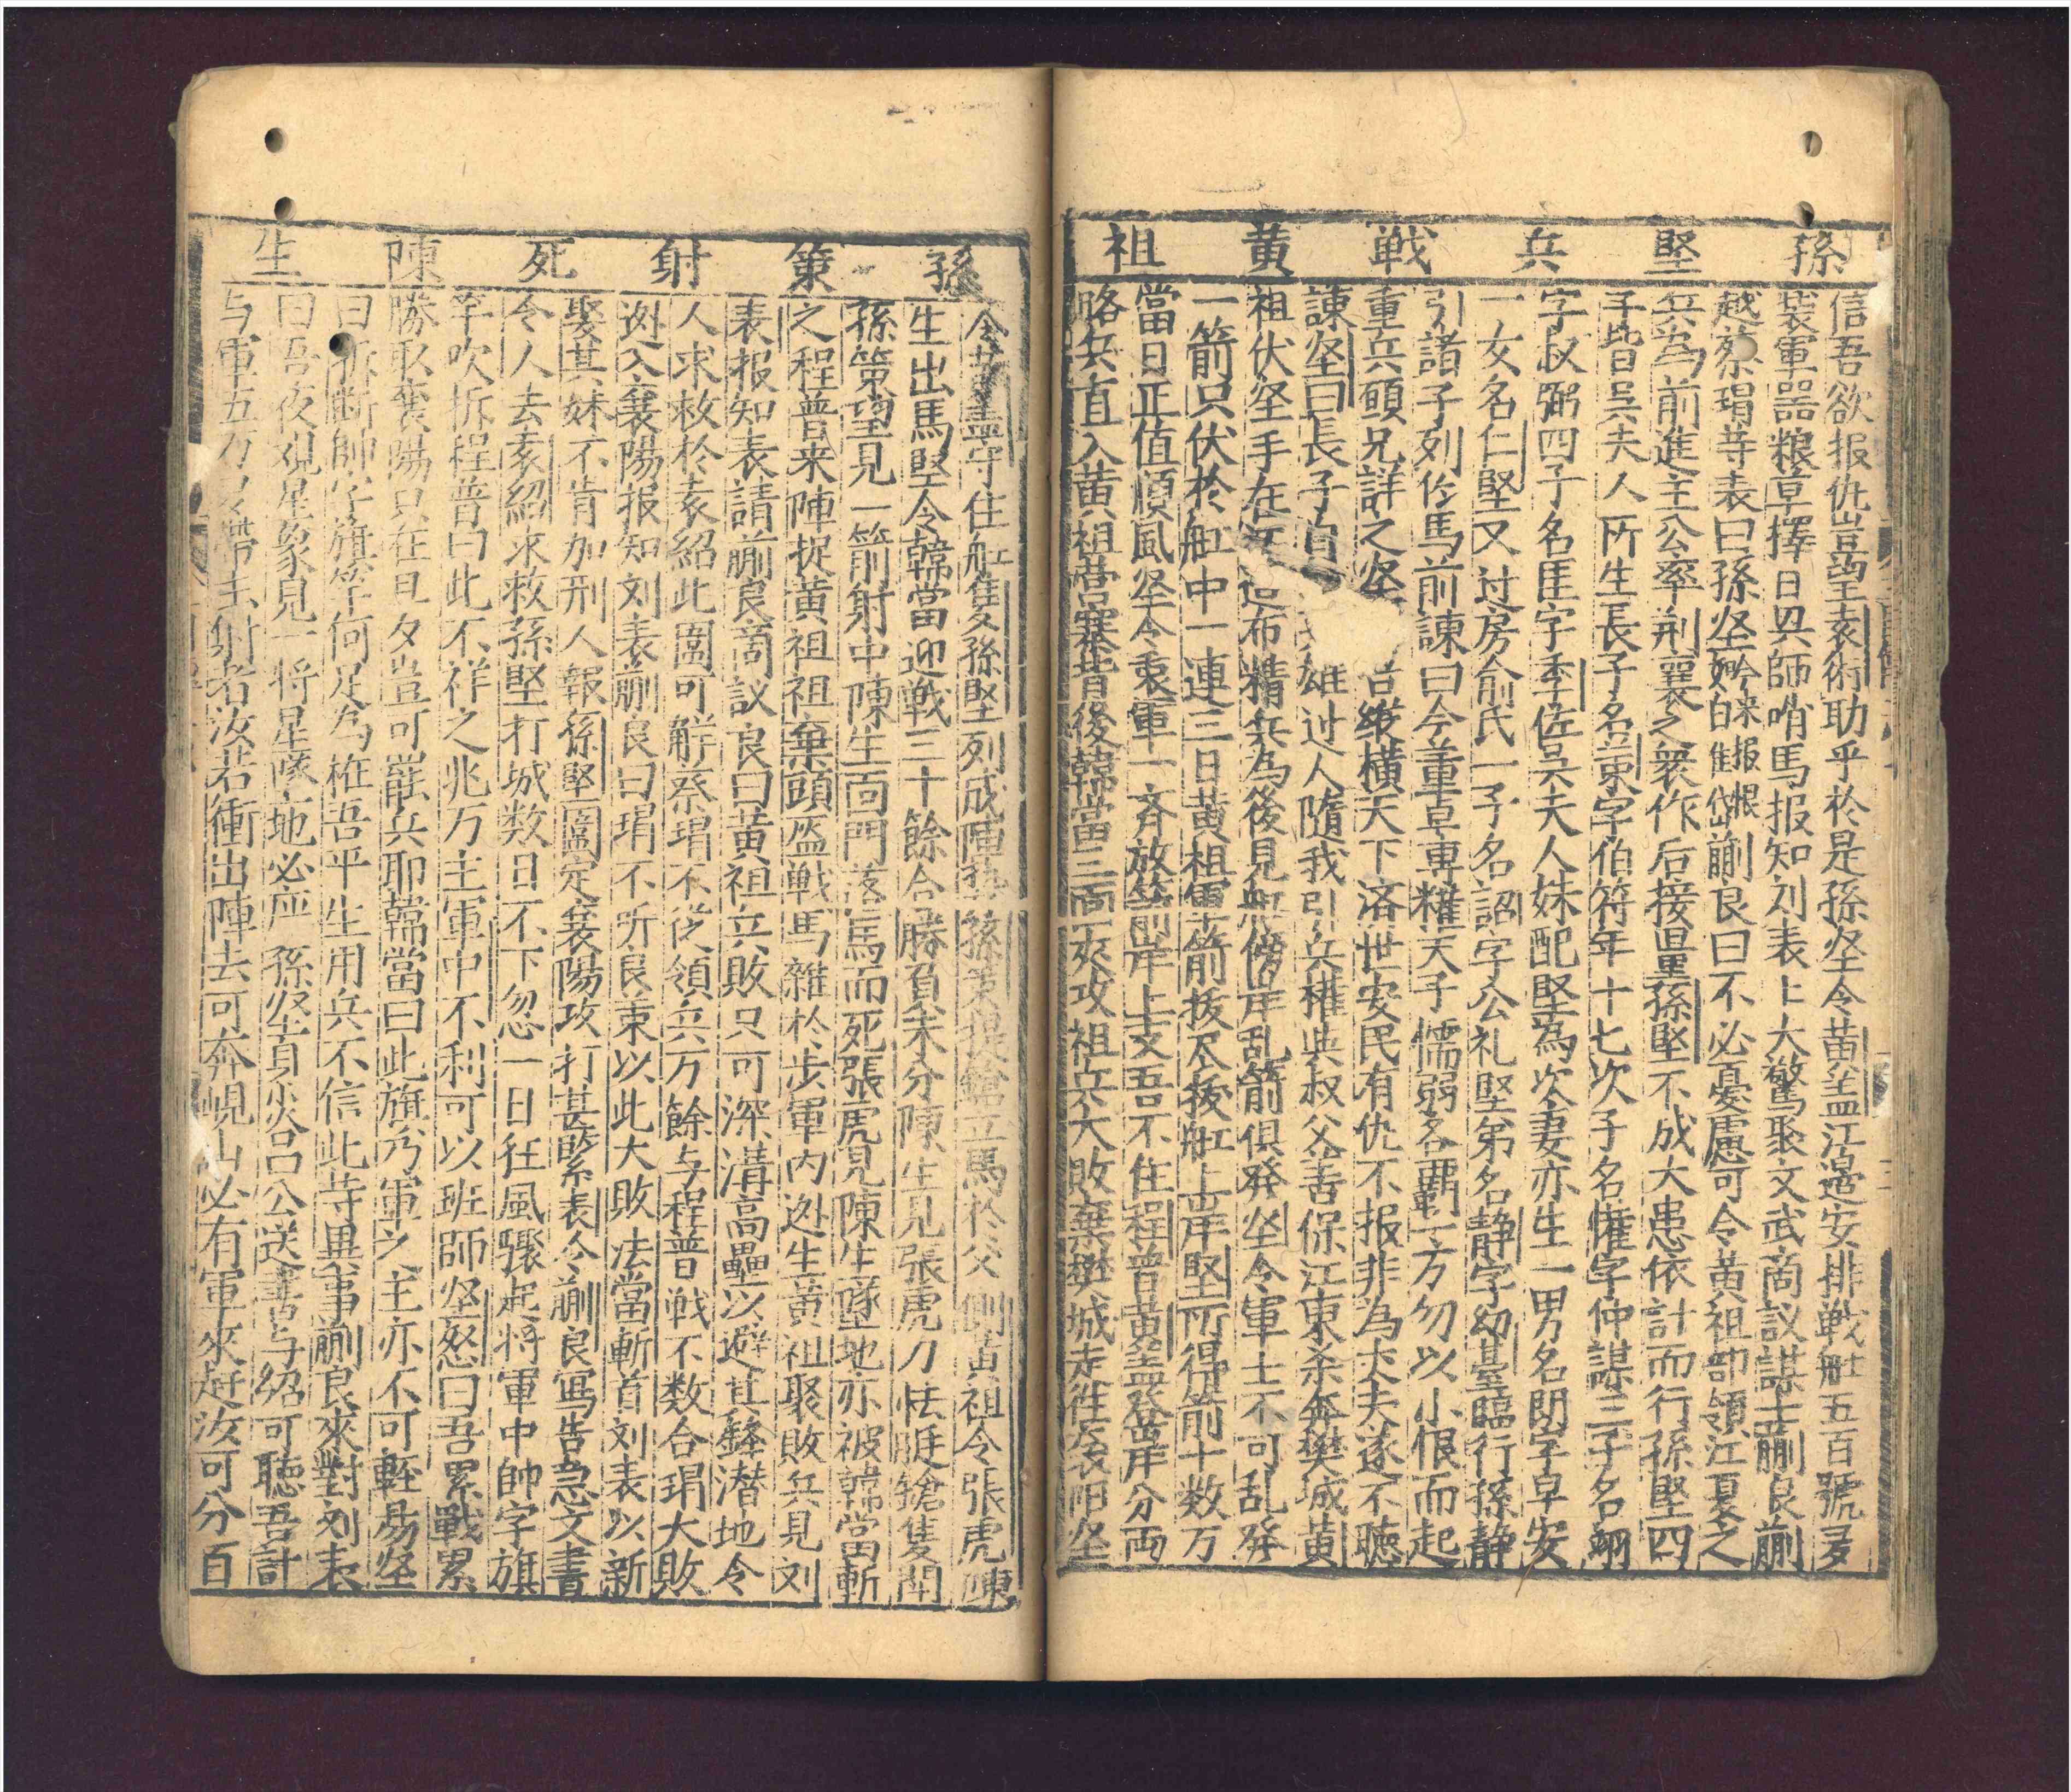 孫堅兵戦黄祖
信吾欲报仇豈望袁術助乎於是孫坚令黄盖江邉安排戦舡五百號多
裝軍器粮草擇日興師哨馬报知刘表上大驚聚文武商議謀士蒯良蒯
越蔡瑁等表曰孫坚今来报恨蒯良曰不必憂慮可令黄祖部領江夏之
兵為前進主公率荆襄之衆作后接量孫堅不成大患依計而行孫堅四
子皆吴夫人所生長子名策字伯符年十七次子名權字仲謀三子名翊
字叔弼四子名匡字季佐吴夫人妹配堅為次妻亦生一男名朗字早安
一女名仁堅又过房俞氏一子名詔字公礼堅弟名静字幼臺臨行孫静
引諸子列於馬前諫曰今董卓專權天子懦弱各覇一方勿以小恨而起
重兵頭兄詳之坚縱橫天下济世安民有仇不报非為丈夫遂不聽
諫坚曰長子雄过人隨我引兵權與叔父善保江東杀奔樊城黄
祖伏坚手在布精兵為後見舡傍岸乱箭俱発坚令軍士不可乱発
一箭只伏於舡中一連三日黄祖軍箭拔尽拨舡上岸堅所得箭十数万
當日正值順風坚令衆軍一斉放箭岸上支吾不住程普黄盖登岸分两
略兵直入黄祖营寨背後韓當三面夾攻祖兵大敗棄樊城走往襄阳坚
孫策射死陳生
令黄盖守住舡隻孫堅列成陣势孫策提鎗立馬於父側黄祖令張虎陳
生出馬堅令韓當迎戦三十餘合勝負未分陳生見張虎刀怯挺鎗隻閗
孫策望見一箭射中陳生面門落馬而死張虎見陳生墜地亦被韓當斬
之程普来陣捉黄祖祖棄頭盔戦馬雜於步軍内迯生黄祖聚敗兵見刘
表报知表請蒯良商議良曰黄祖兵敗只可深溝高壘以避其鋒潜地令
人求救於袁紹此圍可解蔡瑁不從領兵万餘与程普戦不数合瑁大敗
迯入襄陽报知刘表蒯良曰瑁不听良策以此大敗法當斬首刘表以新
娶其妹不肯加刑人報孫堅圍定襄陽攻打甚緊表令蒯良寫告急文書
令人去袁紹求救孫堅打城数日不下忽一日狂風驟起将軍中帥字旗
竿吹拆程普曰此不祥之兆万主軍中不利可以班師坚怒曰吾累戦累
勝取襄陽只在旦夕豈可罷兵耶韓當曰此旗乃軍之主亦不可輕易坚
曰拆断帥字旗竿何足為恠吾平生用兵不信此等異事蒯良來對刘表
曰吾夜观星象見一将星墜地必应孫坚真求吕公送書与紹可聽吾計
与軍五百多帶弓射者汝若衝出陣去可奔峴山必有軍來赶汝可分百